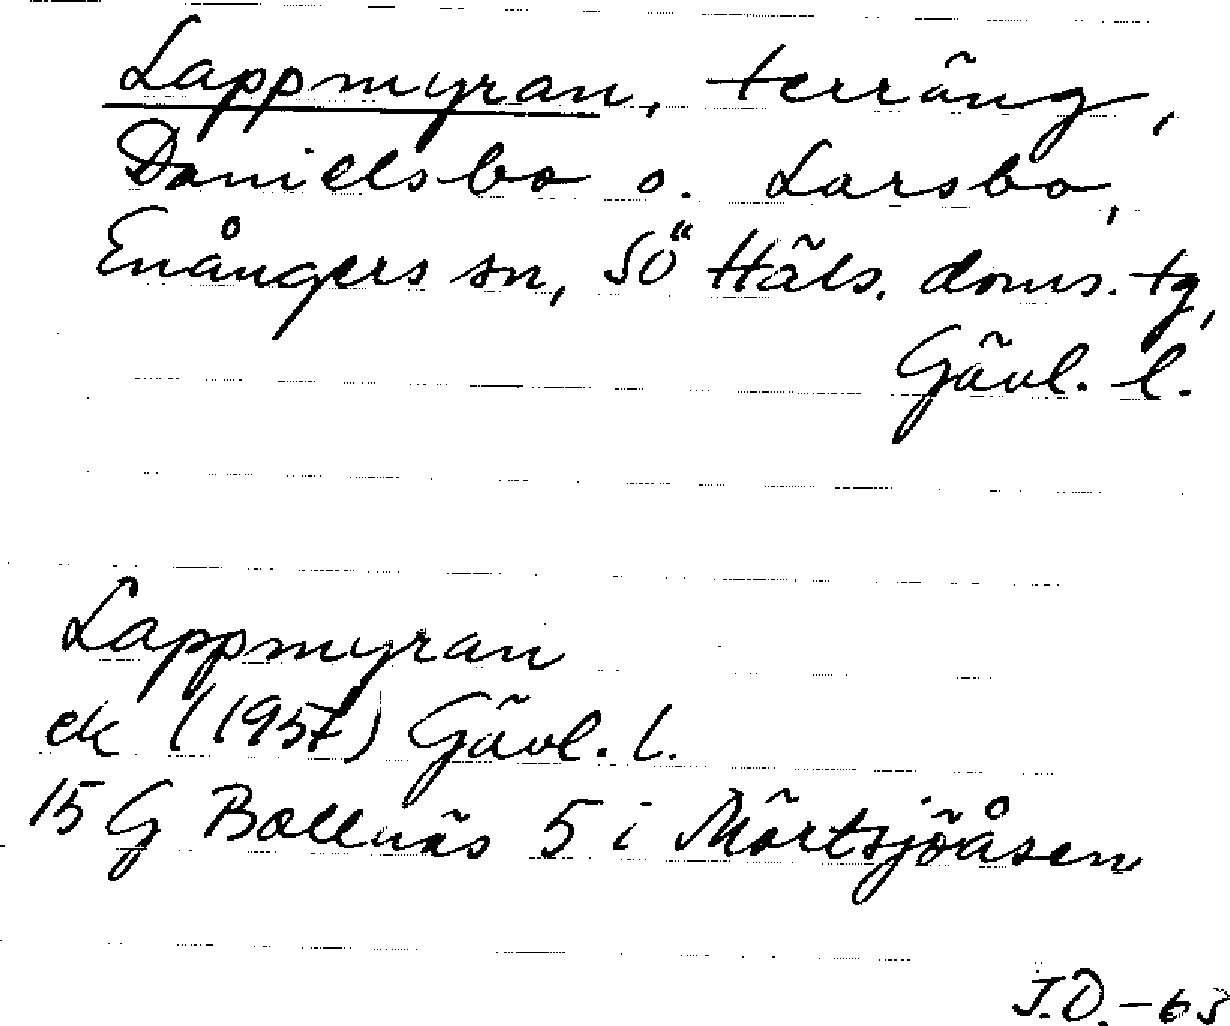 Lappmyran, terräng,
Danielsbo o. Larsbo,
Enångers sn, SÖ Häls. doms. tg,
Gävl. l.
Lappmyran
ek (1957) Gävl. l.
15 G Bollnäs 5 i Mörtsjöåsen
J.O. -63